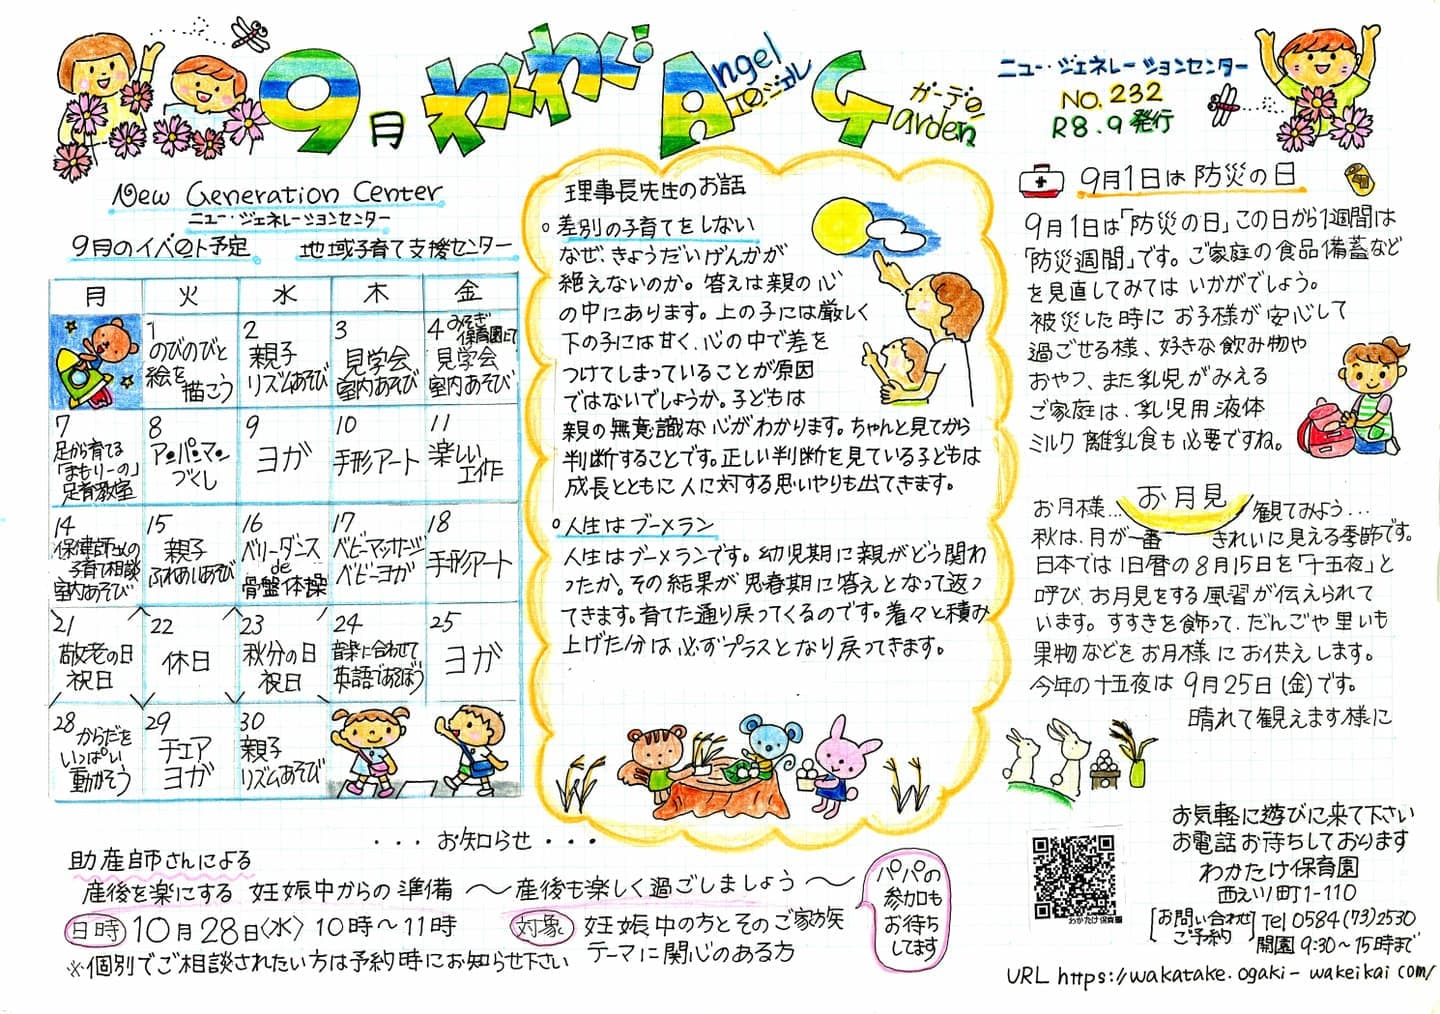 9月 わくわく Angel エンジェル Garden ガーデン
ニュー・ジェネレーションセンター
NO.232
R8.9発行
New Generation Center
ニュー・ジェネレーションセンター
9月のイベント予定 地域子育て支援センター
月 火 水 木 金
1 のびのびと絵を描こう
2 親子リズムあそび
3 見学会 室内あそび
4 みそぎ保育園にて 見学会 室内あそび
7 足から育てる「まもりーの」足育教室
8 アンパンマンづくし
9 ヨガ
10 手形アート
11 楽しい工作
14 保健師さんの子育て相談 室内あそび
15 親子ふれあいあそび
16 ベリーダンスde骨盤体操
17 ベビーマッサージ ベビーヨガ
18 手形アート
21 敬老の日 祝日
22 休日
23 秋分の日 祝日
24 音楽に合わせて英語であそぼう
25 ヨガ
28 からだをいっぱい動かそう
29 チェアヨガ
30 親子リズムあそび
理事長先生のお話
○差別の子育てをしない
なぜ、きょうだいげんかが
絶えないのか。答えは親の心
の中にあります。上の子には厳しく
下の子には甘く、心の中で差を
つけてしまっていることが原因
ではないでしょうか。子どもは
親の無意識な心がわかります。ちゃんと見てから
判断することです。正しい判断を見ている子どもは
成長とともに人に対する思いやりも出てきます。
○人生はブーメラン
人生はブーメランです。幼児期に親がどう関わ
ったか。その結果が思春期に答えとなって返っ
てきます。育てた通り戻ってくるのです。着々と積み
上げた分は必ずプラスとなり戻ってきます。
9月1日は防災の日
9月1日は「防災の日」この日から1週間は
「防災週間」です。ご家庭の食品備蓄など
を見直してみてはいかがでしょう。
被災した時にお子様が安心して
過ごせる様、好きな飲み物や
おやつ、また乳児がみえる
ご家庭は、乳児用液体
ミルク離乳食も必要ですね。
お月見
お月様… 観てみよう…
秋は、月が一番きれいに見える季節です。
日本では旧暦の8月15日を「十五夜」と
呼び、お月見をする風習が伝えられて
います。すすきを飾って、だんごや里いも
果物などをお月様にお供えします。
今年の十五夜は9月25日(金)です。
晴れて観えます様に
・・・お知らせ・・・
助産師さんによる
産後を楽にする 妊娠中からの準備 ～産後も楽しく過ごしましょう～
日時 10月28日〈水〉10時～11時
対象 妊娠中の方とそのご家族
テーマに関心のある方
※個別でご相談されたい方は予約時にお知らせ下さい
パパの
参加も
お待ち
してます
わかたけ保育園
お気軽に遊びに来て下さい
お電話お待ちしております
わかたけ保育園
西えりり町1-110
[お問い合わせ ご予約] Tel 0584(73)2530
開園 9:30～15時まで
URL https://wakatake.ogaki-wakeikai com/